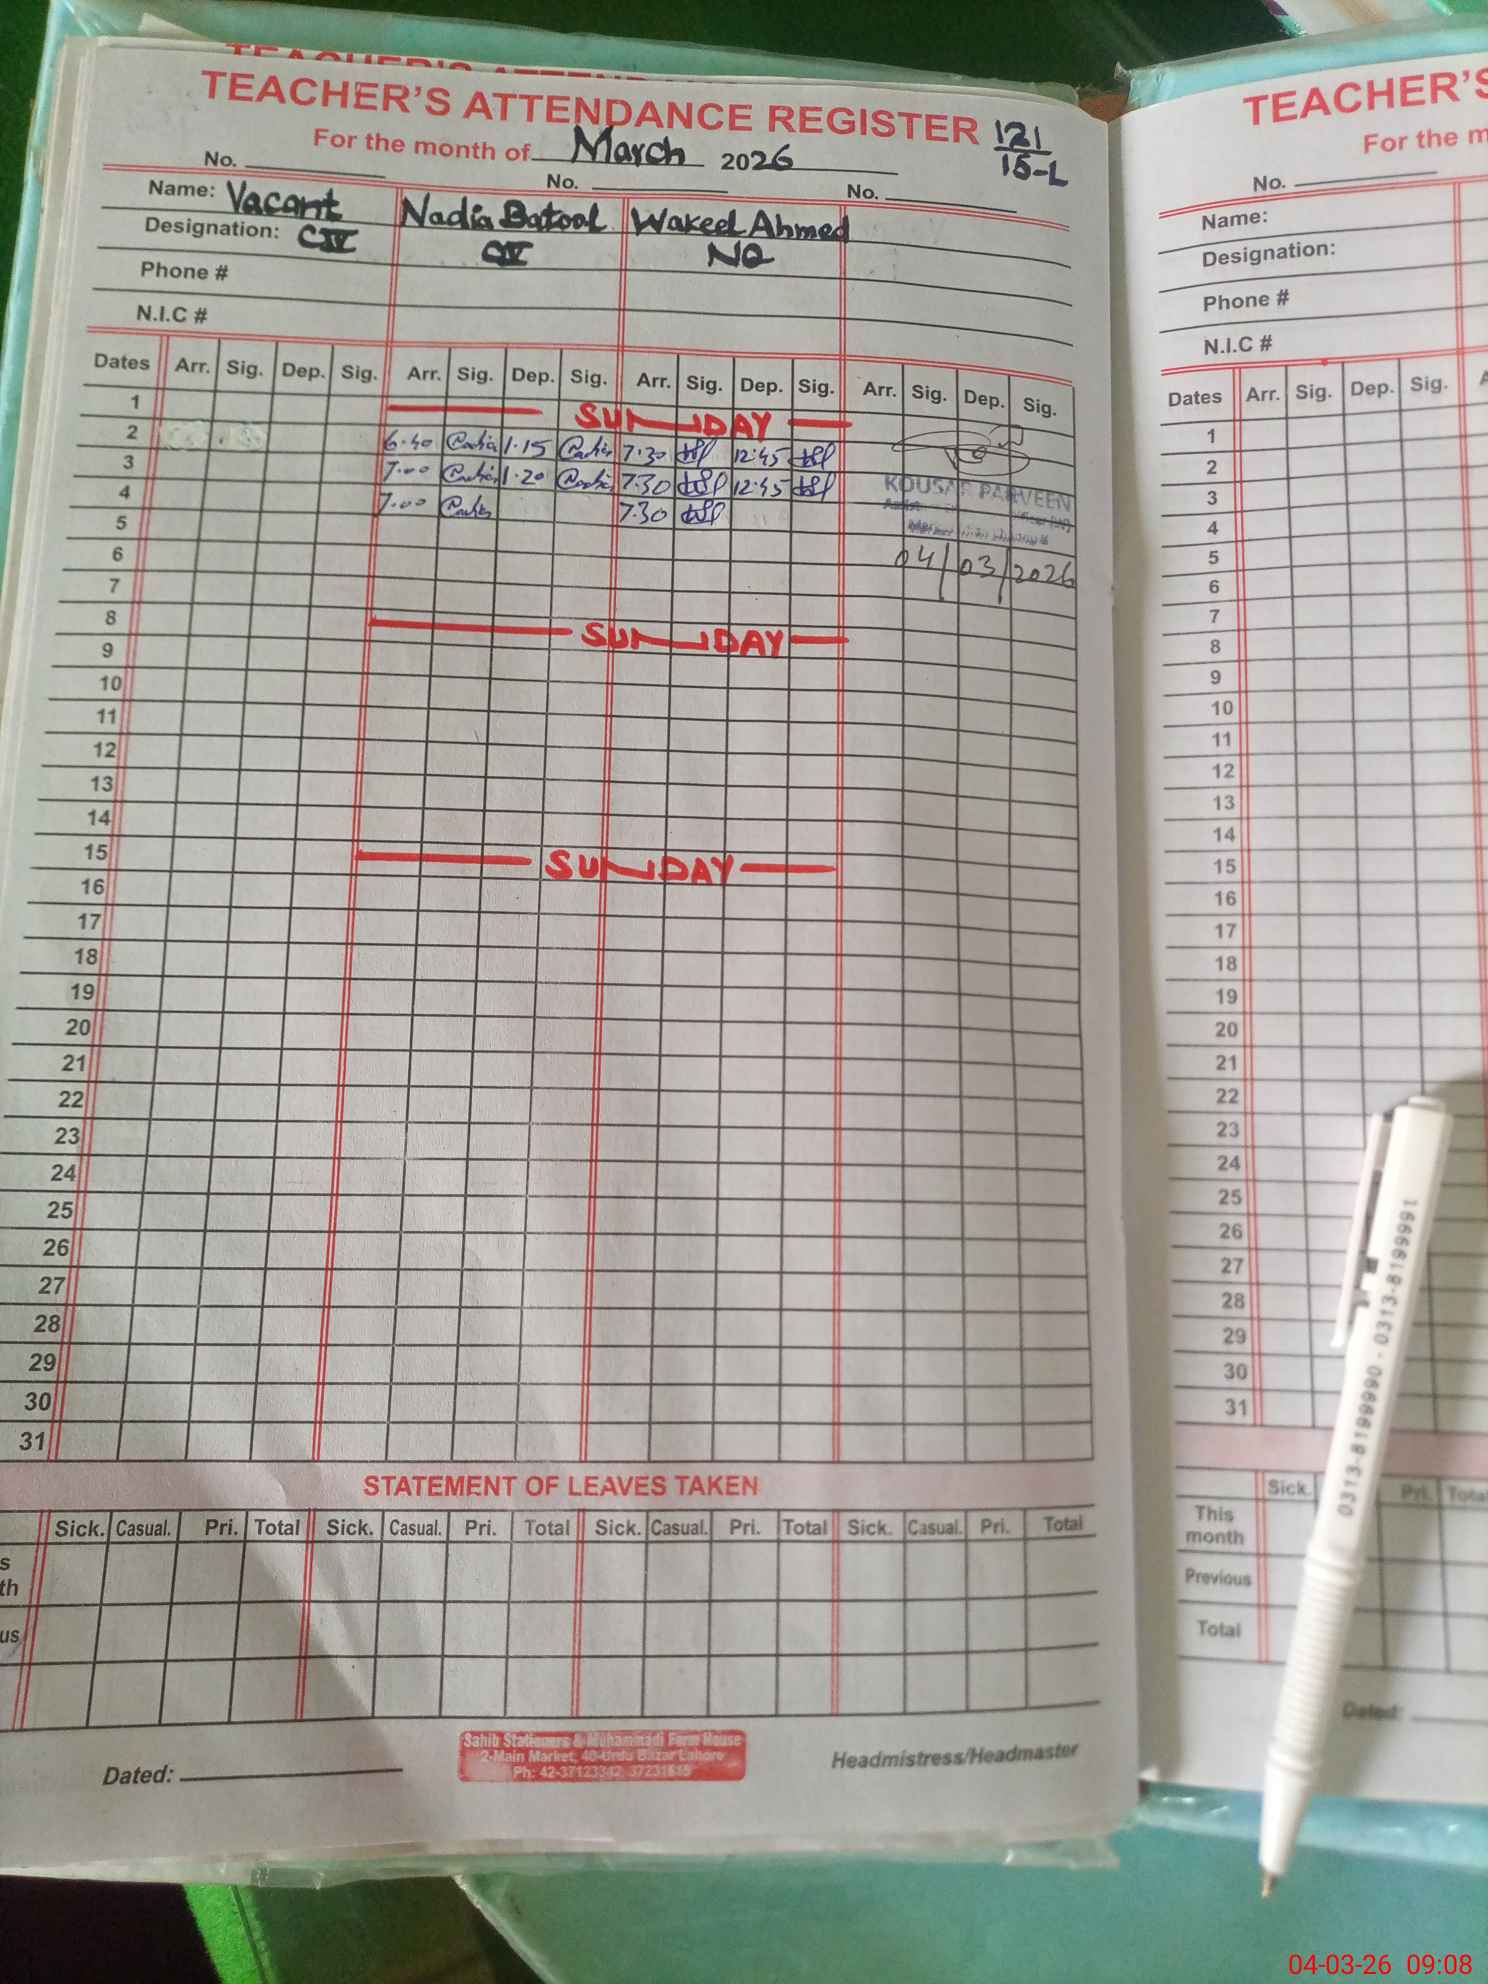 TEACHER'S ATTENDANCE REGISTER
121
15-L
For the month of March 2026
No. No. No.
Name: Vacant Nadia Batool Wakeel Ahmed
Designation: CIV CIV NQ
Phone #
N.I.C #
Dates Arr. Sig. Dep. Sig. Arr. Sig. Dep. Sig. Arr. Sig. Dep. Sig. Arr. Sig. Dep. Sig.
1 SUNDAY
2 6.40 Nadia 1.15 Nadia 7.30 12:45
3 7.00 Nadia 1.20 Nadia 7.30 12:45
4 7.00 Nadia 7.30
KOUSAR PARVEEN
04/03/2026
5
6
7
8 SUNDAY
9
10
11
12
13
14
15 SUNDAY
16
17
18
19
20
21
22
23
24
25
26
27
28
29
30
31
STATEMENT OF LEAVES TAKEN
Sick. Casual. Pri. Total Sick. Casual. Pri. Total Sick. Casual. Pri. Total Sick. Casual. Pri. Total
s
th
us
Dated:
Sahib Stationers & Muhammadi Form House
2-Main Market, 40-Urdu Bazar Lahore
Ph: 42-37123342, 37231615
Headmistress/Headmaster
TEACHER'S
For the m
No.
Name:
Designation:
Phone #
N.I.C #
Dates Arr. Sig. Dep. Sig.
1
2
3
4
5
6
7
8
9
10
11
12
13
14
15
16
17
18
19
20
21
22
23
24
25
26
27
28
29
30
31
Sick. Pri. Total
This
month
Previous
Total
Dated:
0313-8199990 - 0313-8199991
04-03-26 09:08